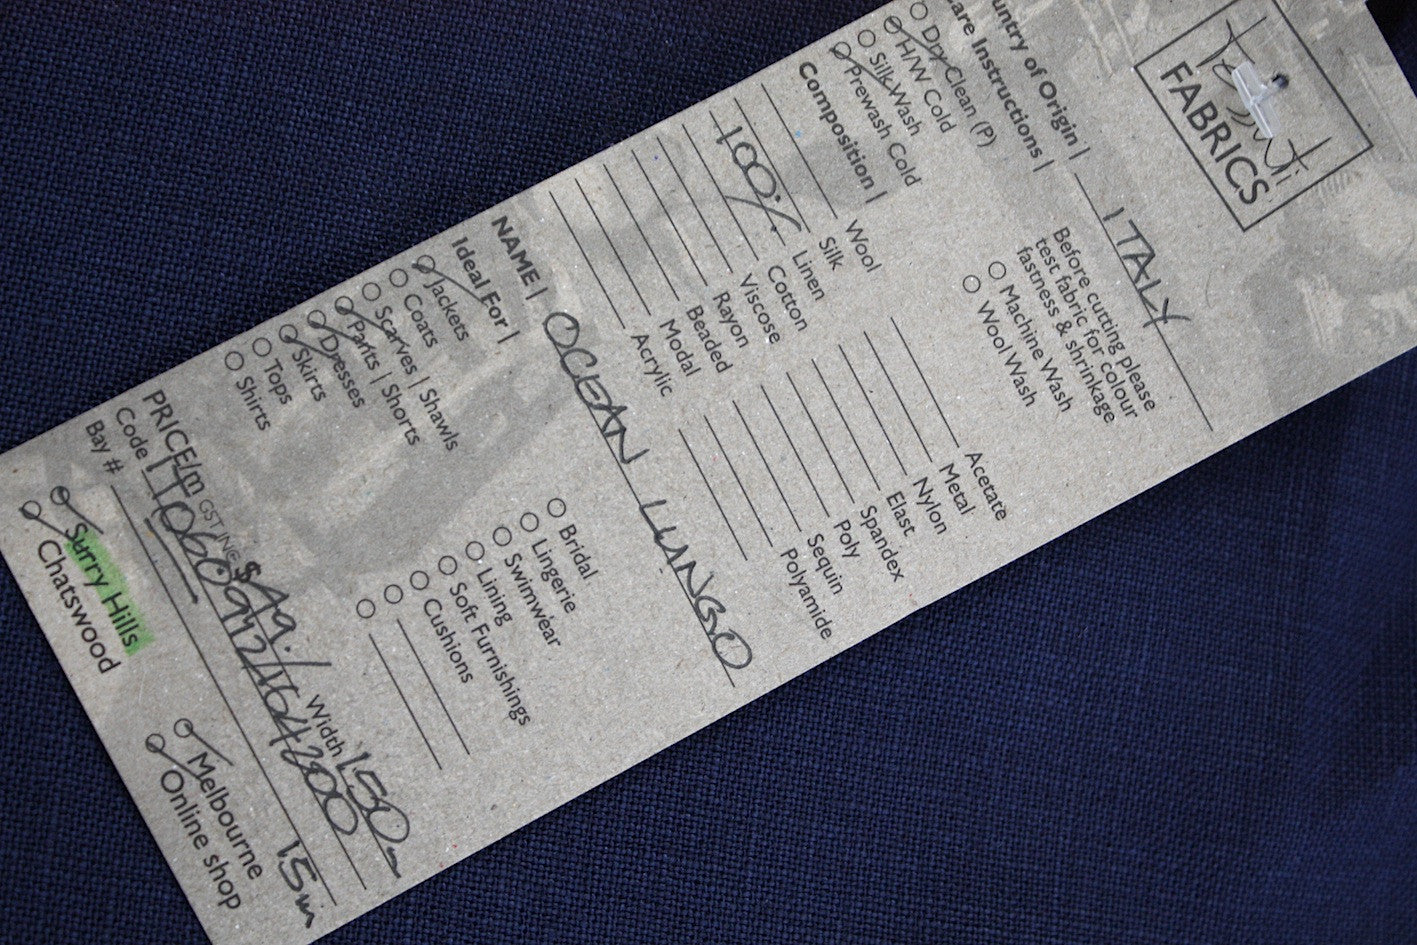 Tessuti
FABRICS
untry of Origin | ITALY
are Instructions |
Dry Clean (P)
H/W Cold
Silk Wash
Prewash Cold
Before cutting please
test fabric for colour
fastness & shrinkage
Machine Wash
Wool Wash
Composition |
Wool
Silk
100% Linen
Cotton
Viscose
Rayon
Beaded
Modal
Acrylic
Acetate
Metal
Nylon
Elast
Spandex
Poly
Sequin
Polyamide
NAME | OCEAN LUNGO
Ideal For |
Jackets
Coats
Scarves | Shawls
Pants | Shorts
Dresses
Skirts
Tops
Shirts
Bridal
Lingerie
Swimwear
Lining
Soft Furnishings
Cushions
PRICE/m GST INC $49./ Width 150
Code
Bay # 1.5m
Surry Hills
Chatswood
Melbourne
Online shop